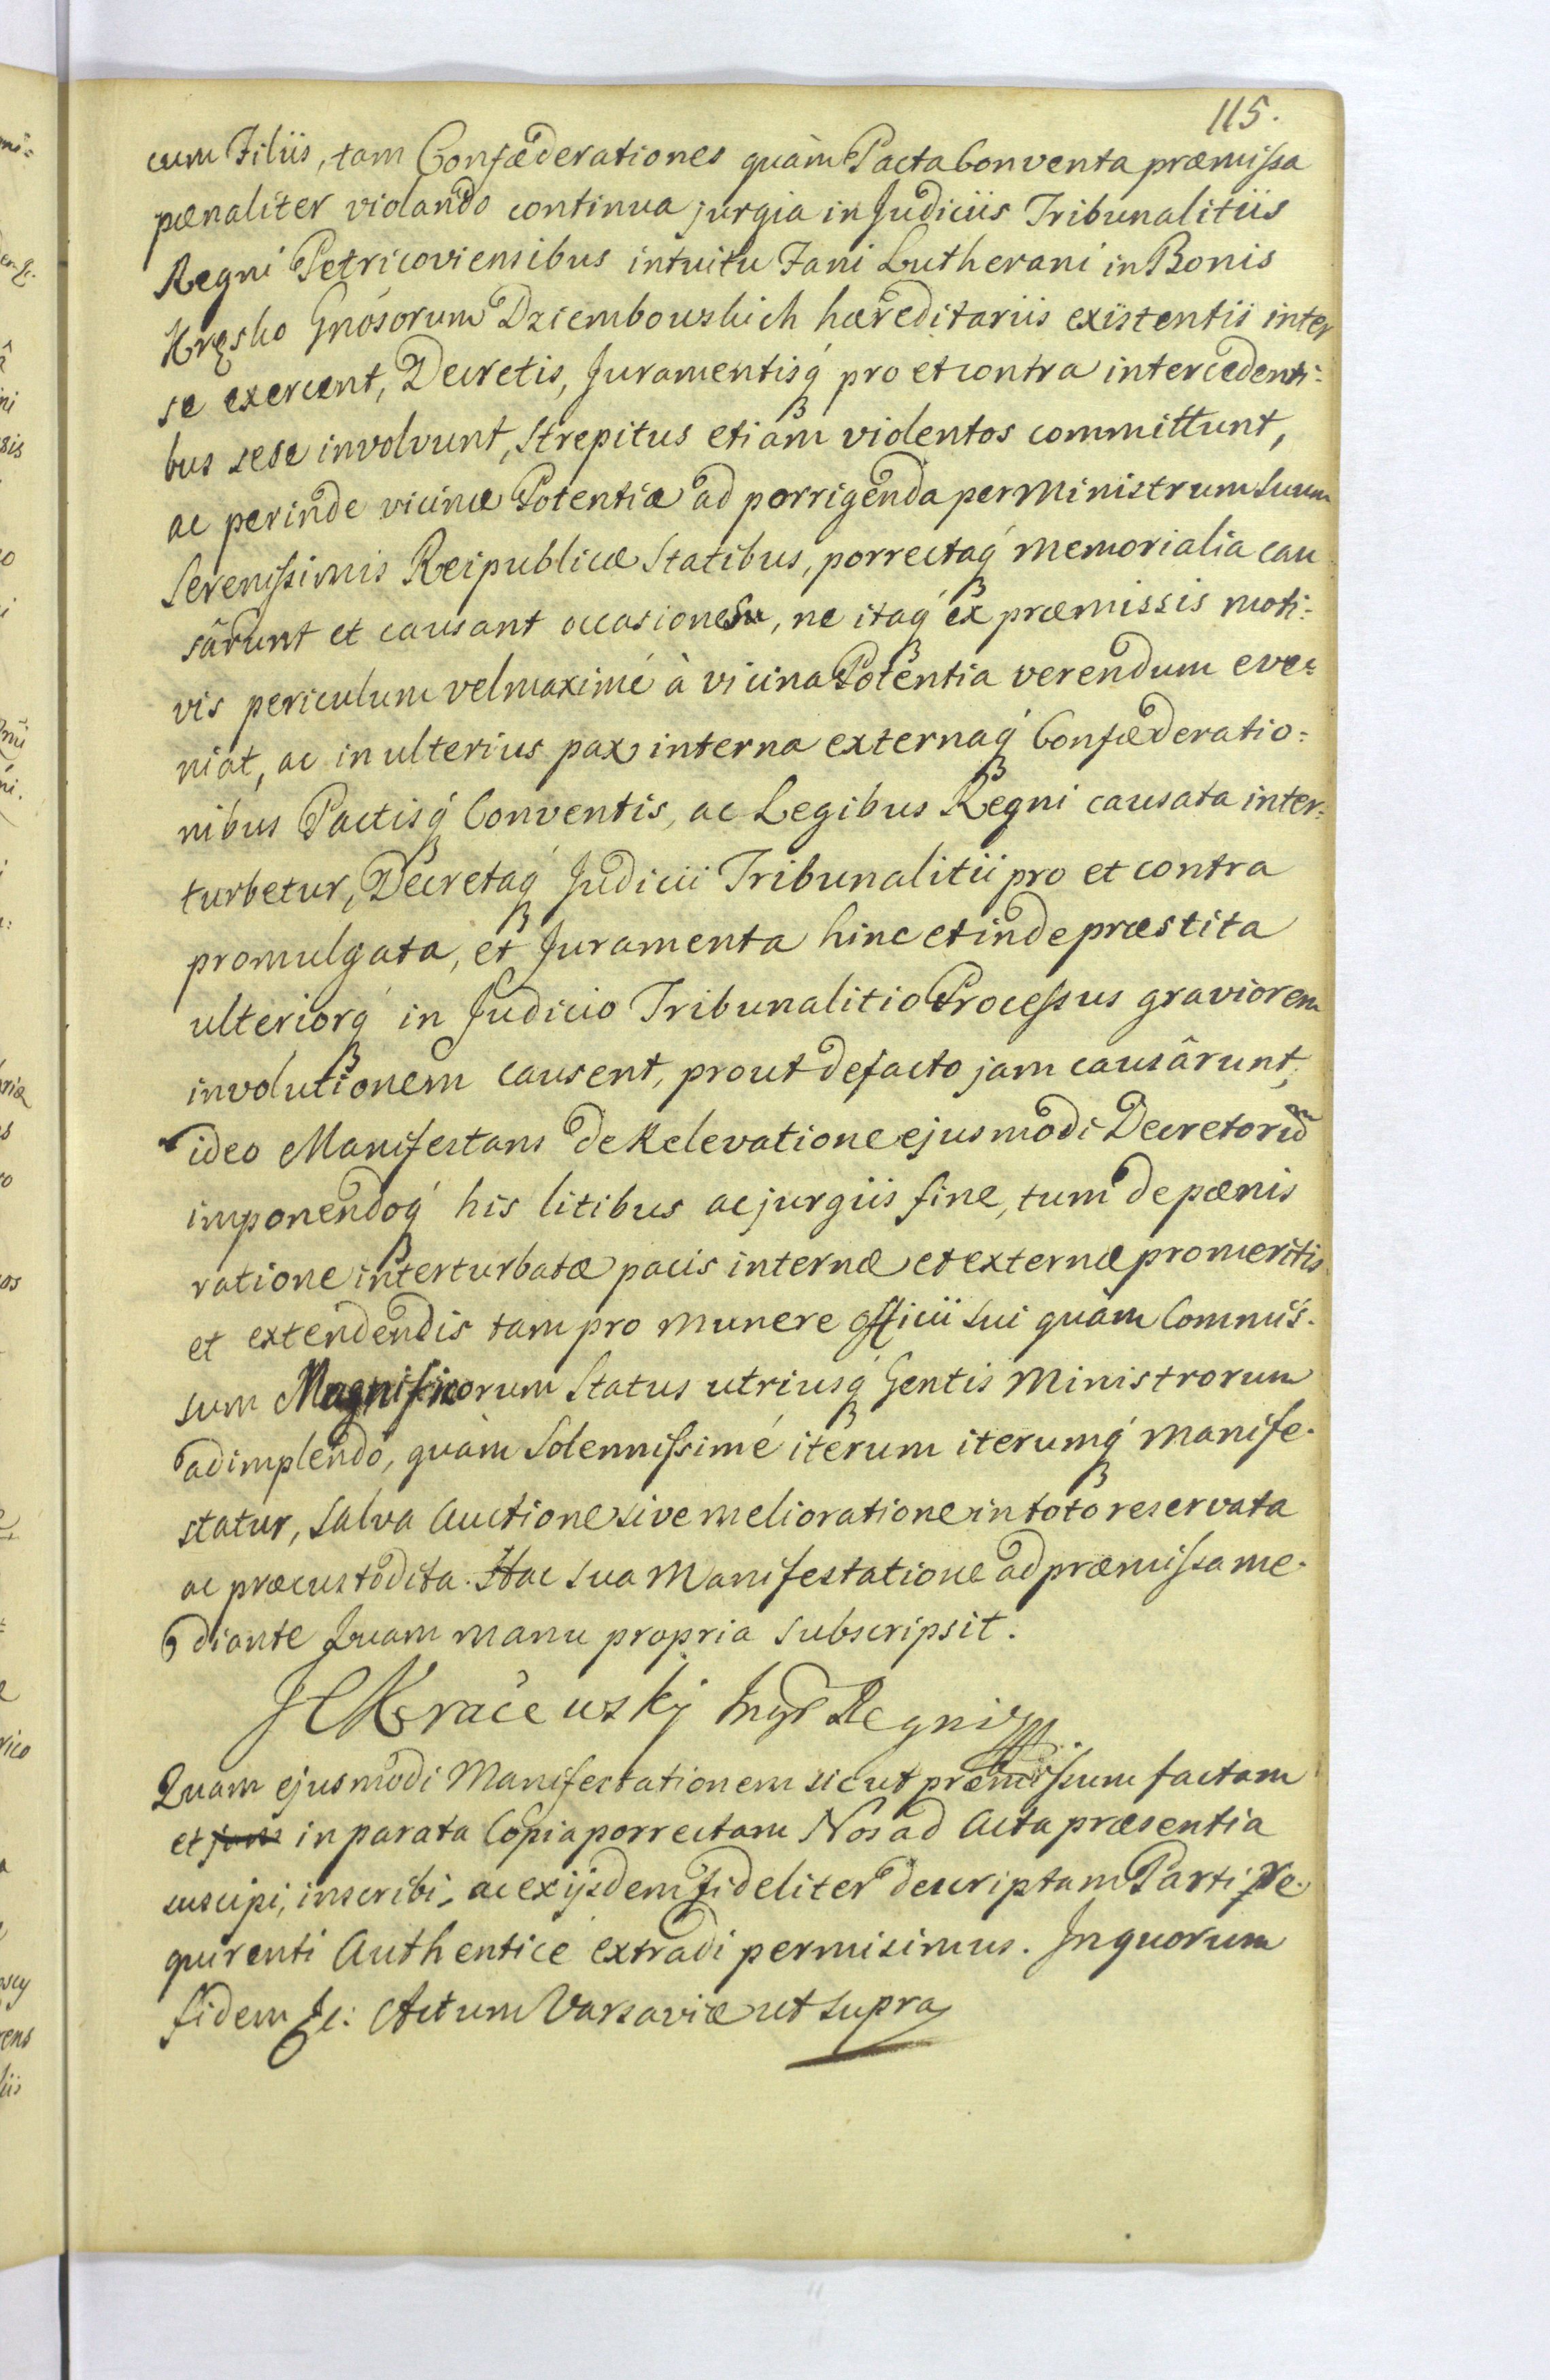 115.
cum Filiis, tam Confæderationes quàm Pacta Conventa præmissa
pænaliter violando continua jurgia in Judiciis Tribunalitiis
Regni Petricoviensibus intuitu Fani Lutherani in Bonis
Kręsko Gnósorum Dziembowskich hæreditariis existentii inter
se exercent, Decretis, Juramentisq́ pro et contra intercedenti:
bus sese involvunt, Strepitus etiam violentos committunt,
ac perinde vicinæ Potentiæ ad porrigenda per Ministrum Suum
Serenissimis Reipublicæ Statibus, porrectaq́ Memorialia cau
sârunt et causant occasionem, ne itaq́ ex præmissis moti:
vis periculum vel maximé à vicina Potentia verendum eve:
niat, ac in ulterius pax interna externaq́ Confæderatio:
nibus Pactisq́ Conventis, ac Legibus Regni causata inter:
turbetur, Decretaq́ Judicii Tribunalitii pro et contra
promulgata, et Juramenta hinc et inde præstita
ulteriorq́ in Judicio Tribunalitio Processus graviorem
involutionem causent, prout de facto jam causârunt;
ideo Manifestans de Relevatione ejusmodi Decretorū
imponendoq́ his litibus ac jurgiis fine, tum de pænis
ratione interturbatæ pacis internæ et externæ promeritis
et extendendis tam pro munere officii sui quàm Commis.
sum Magnificorum Status utriusq́ Gentis Ministrorum
adimplendo, quàm Solennissimé iterum iterumq́ manife.
statur, Salva Auctione sive melioratione in toto reservata
ac præcustodita. Hac sua Manifestatione ad præmissa me.
diante quam manu propria subscripsit.
Regni
Quam ejusmodi Manifestationem sicut præmissum factam
et in parata Copia porrectam Nos ad Acta præsentia
suscipi, inscribi, ac ex ijsdem fideliter descriptam Parti re.
quirenti Authenticè extradi permisimus. In quorum
fidem &c: Actum Varsaviæ ut supra